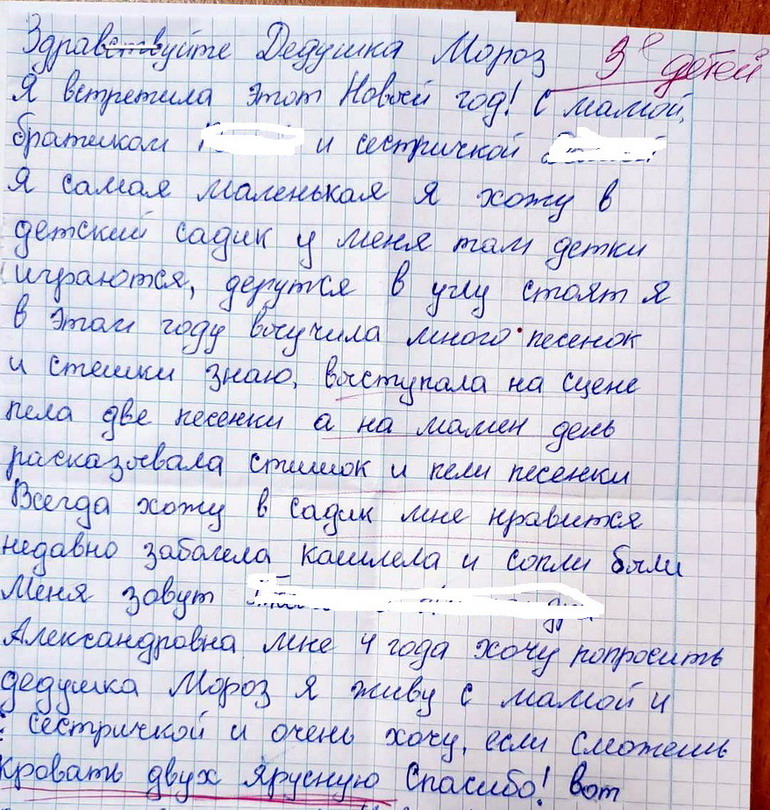 Здравствуйте Дедушка Мороз 3е детей
Я встретила этот Новый год! С мамой,
братиком и сестричкой
Я самая маленькая я хожу в
детский садик у меня там детки
играются, дерутся в углу стоят я
в этом году выучила много песенок
и стешки знаю, выступала на сцене
пела две песенки а на мамен день
расказывала стишок и пели песенки
Всегда хожу в садик мне нравится
недавно забагела кашлела и сопли были
Меня зовут
Александровна мне 4 года хочу попросить
дедушка Мороз я живу с мамой и
с сестричкой и очень хочу, если сможешь
кровать двух ярусную Спасибо! вот